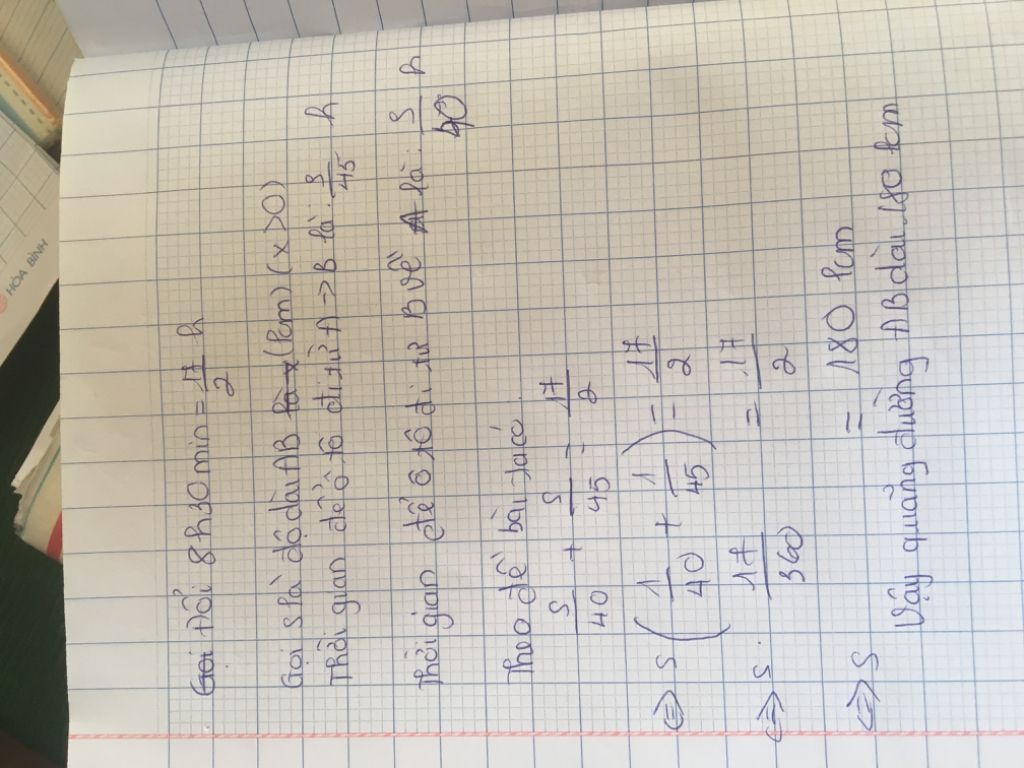 Đổi 8h30min = 17/2 h
Gọi S là độ dài AB (km) (x > 0)
Thời gian để ô tô đi từ A -> B là: S/45 h
Thời gian để ô tô đi từ B về A là: S/40 h
Theo đề bài ta có
S/40 + S/45 = 17/2
<=> S (1/40 + 1/45) = 17/2
<=> S . 17/360 = 17/2
<=> S = 180 km
Vậy quãng đường AB dài 180 km
HÒA BÌNH